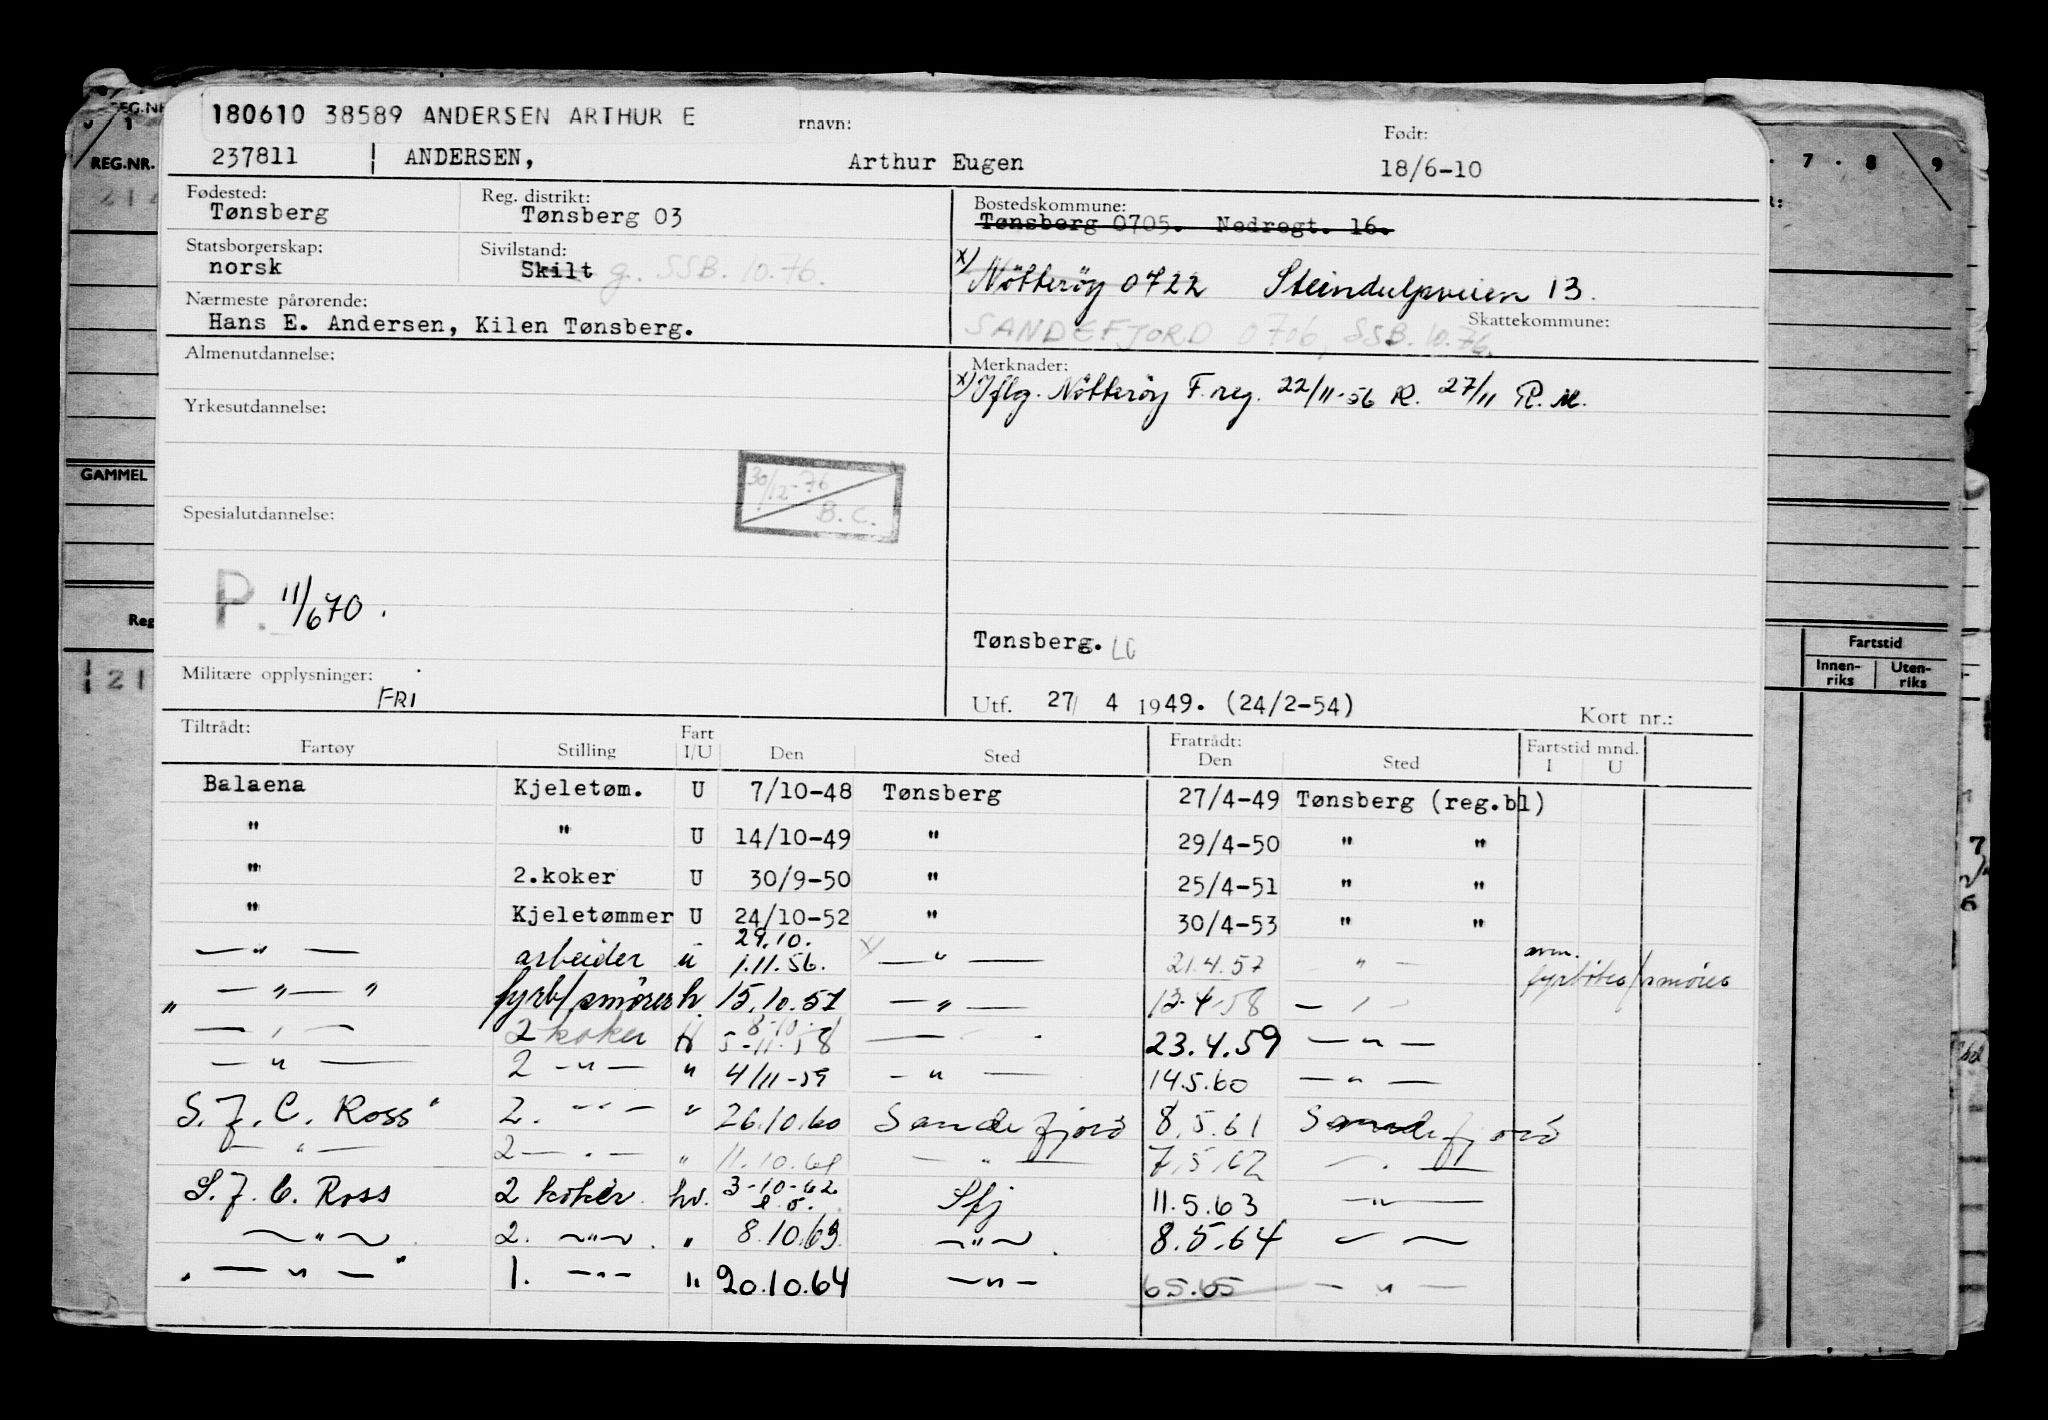 180610 38589 ANDERSEN ARTHUR E
rnavn: Født:
REG.NR. 237811 ANDERSEN, Arthur Eugen 18/6-10 7 . 8 9
Fødested: Reg. distrikt: Bostedskommune:
Tønsberg Tønsberg 03 Tønsberg 0705. Nedregt. 16.
Statsborgerskap: Sivilstand:
norsk Skilt g. SSB. 10.76.
x) Nötteröy 0722 Steindulpveien 13.
Nærmeste pårørende:
Hans E. Andersen, Kilen Tønsberg.
Skattekommune:
SANDEFJORD 0706, SSB. 10.76.
Almenutdannelse: Merknader:
x) Iflg. Nötteröy F. reg. 22/11-56 R. 27/11 R. M.
Yrkesutdannelse:
GAMMEL
30/12-76
B. C.
Spesialutdannelse:
P. 11/670.
Reg
Tønsberg. LC
Fartstid
Innen-riks Uten-riks
Militære opplysninger:
FRI
Utf. 27/ 4 1949. (24/2-54) Kort nr.:
Tiltrådt: Fratrådt: Fartstid mnd.
Fartøy Stilling Fart I/U Den Sted Den Sted I U
Balaena Kjeletøm. U 7/10-48 Tønsberg 27/4-49 Tønsberg (reg.bl)
" " U 14/10-49 " 29/4-50 " "
" 2.koker U 30/9-50 " 25/4-51 " "
" Kjeletømmer U 24/10-52 " 30/4-53 " "
29.10.
— " — arbeider u 1.11.56. x/ — " — 21.4.57 — " — anm.
" — " — " fyrb/smører h. 15.10.57 — " — 12.4.58 — " — fyrböter/smörer
8-10-
— " — 2 koker H 5-11-58 — " — 23.4.59 — " —
— " — 2 — " — " 4/11-59 — " — 14.5.60 — " —
S. J. C. Ross" 2. — " — " 26.10.60 Sandefjord 8.5.61 Sandefjord
— " — 2 — " — " 11.10.61 — " — 7.5.62 — " —
S. J. C. Ross 2 koker. hv. 3-10-62 Sfj 11.5.63 — " —
— " — 2. — " — . " 8.10.63. — " — . 8.5.64 — " —
" — " — " 1. — " — " 20.10.64 — " — 6.5.65 — " —